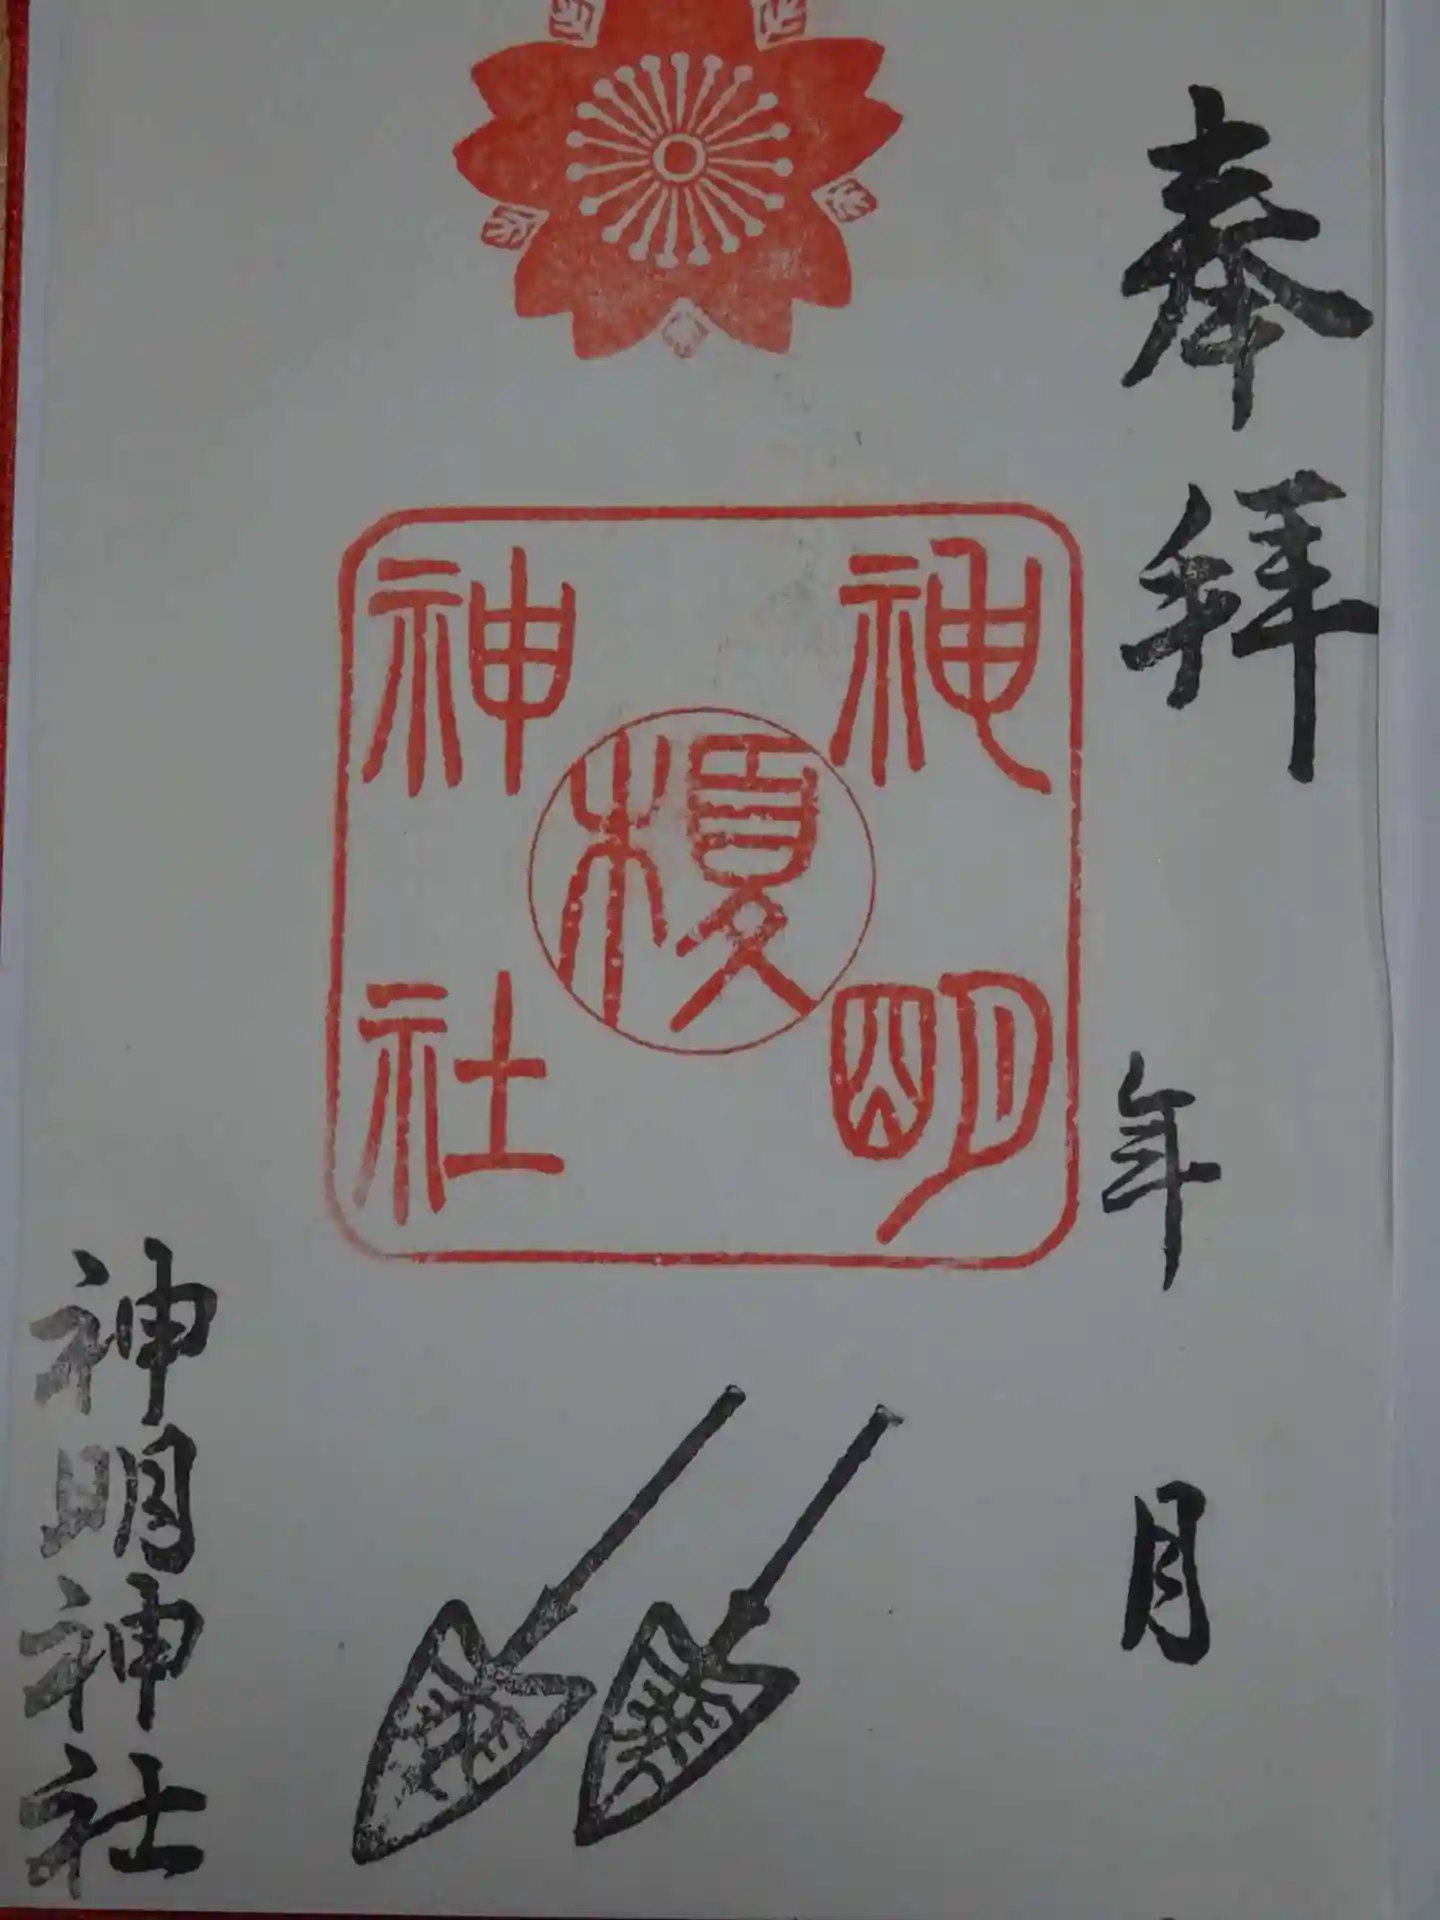 奉拝
年　月
神明
榎
神社
神明神社